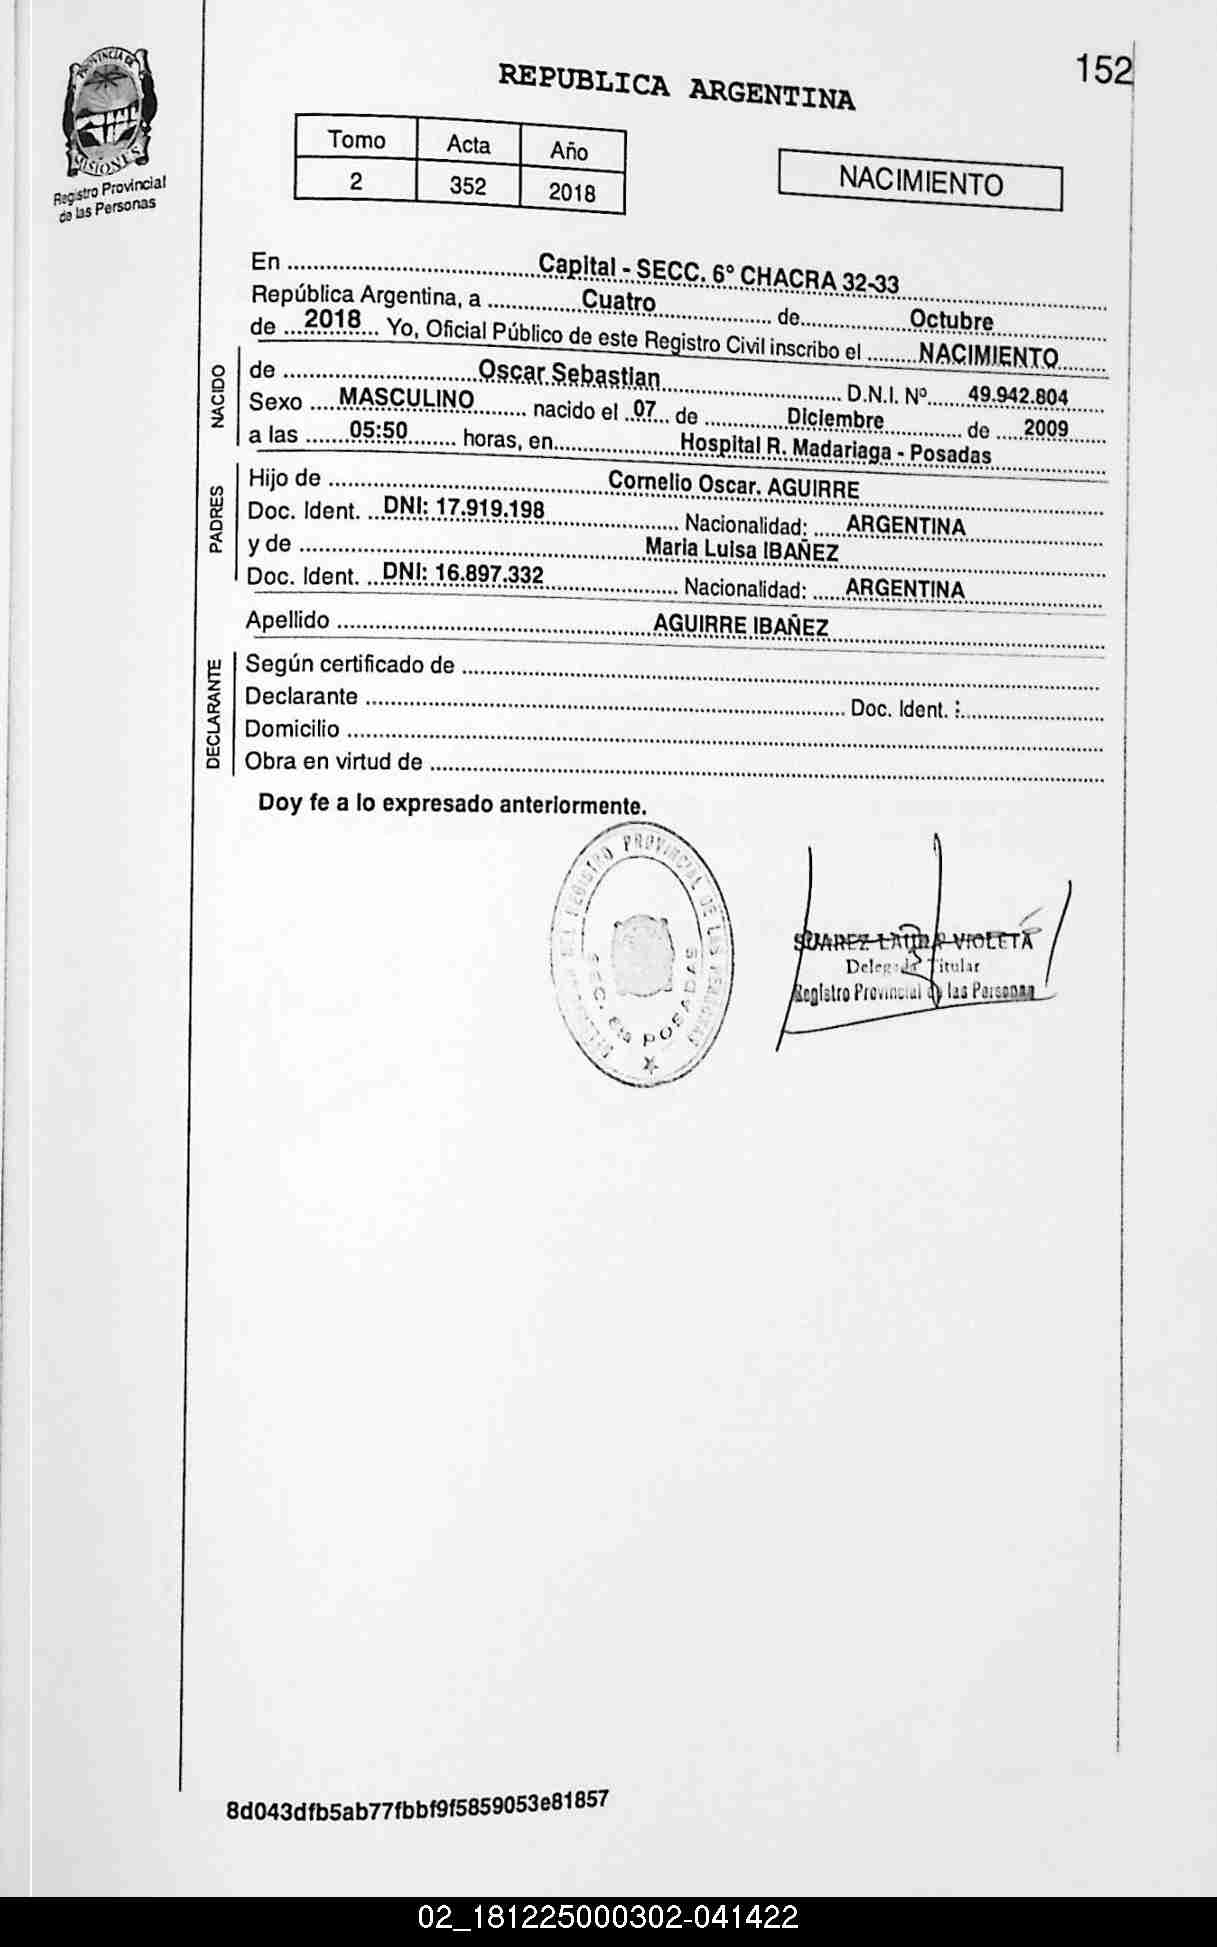 152
REPUBLICA ARGENTINA
PROVINCIA DE
MISIONES
Registro Provincial
de las Personas
Tomo Acta Año
2 352 2018
NACIMIENTO
En ........ Capital - SECC. 6° CHACRA 32-33 ........
República Argentina, a ........ Cuatro ........ de ........ Octubre ........
de ... 2018 ... Yo, Oficial Público de este Registro Civil inscribo el ........ NACIMIENTO ........
NACIDO
de ........ Oscar Sebastian ........ D.N.I. Nº ...... 49.942.804 ......
Sexo .... MASCULINO ........ nacido el .. 07 ... de ........ Diciembre ........ de ..... 2009 ......
a las ....... 05:50 ........ horas, en ........ Hospital R. Madariaga - Posadas ........
PADRES
Hijo de ........ Cornelio Oscar. AGUIRRE ........
Doc. Ident. ... DNI: 17.919.198 ........ Nacionalidad: ..... ARGENTINA ........
y de ........ Maria Luisa IBAÑEZ ........
Doc. Ident. ... DNI: 16.897.332 ........ Nacionalidad: ..... ARGENTINA ........
Apellido ........ AGUIRRE IBAÑEZ ........
DECLARANTE
Según certificado de ........
Declarante ........ Doc. Ident. : ........
Domicilio ........
Obra en virtud de ........
Doy fe a lo expresado anteriormente.
DEL REGISTRO PROVINCIAL DE LAS PERSONAS
SEC. 6ta POSADAS
SUAREZ LAURA VIOLETA
Delegada Titular
Registro Provincial de las Personas
8d043dfb5ab77fbbf9f5859053e81857
02_181225000302-041422